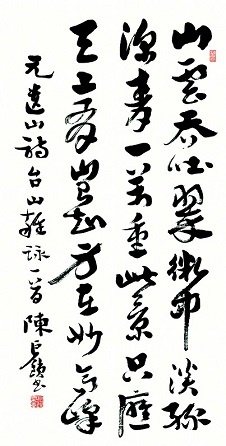 山雲吞吐翠微中淡綠
深青一萬重此景只應
天上有豈知身在妙高峰
元遺山詩台山雜詠一首陳巨鎖書